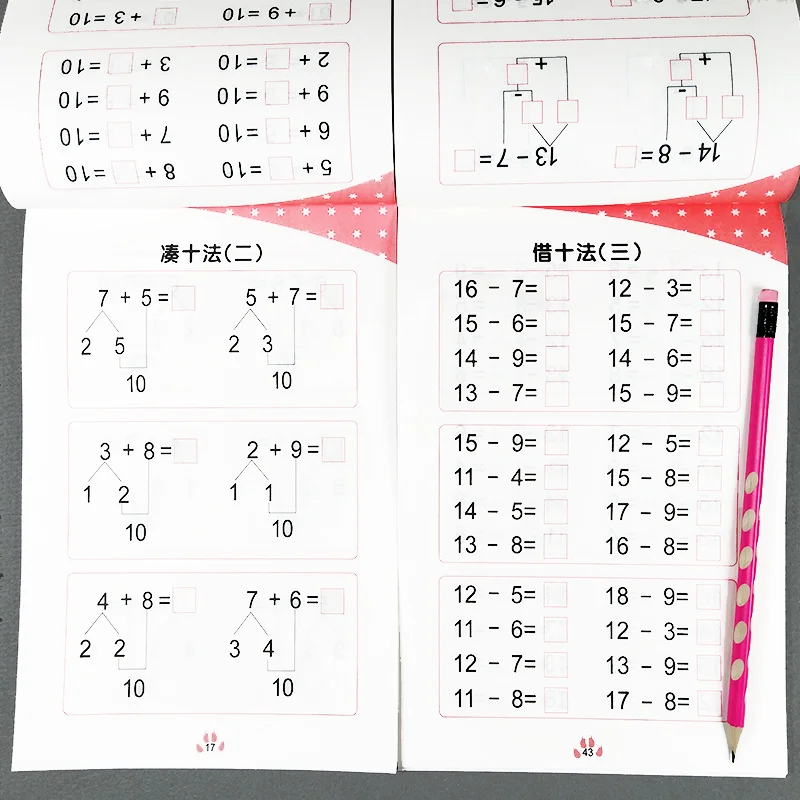 + 3 =10 + 9 =10
3 + =10 2 + =10
9 + =10 9 + =10
7 + =10 6 + =10
8 + =10 5 + =10
+ +
- -
13 - 7 = 14 - 8 =
凑十法(二)
7 + 5 = 5 + 7 =
2 5 2 3
10 10
3 + 8 = 2 + 9 =
1 2 1 1
10 10
4 + 8 = 7 + 6 =
2 2 3 4
10 10
17
借十法(三)
16 - 7= 12 - 3=
15 - 6= 15 - 7=
14 - 9= 14 - 6=
13 - 7= 15 - 9=
15 - 9= 12 - 5=
11 - 4= 15 - 8=
14 - 5= 17 - 9=
13 - 8= 16 - 8=
12 - 5= 18 - 9=
11 - 6= 12 - 3=
12 - 7= 13 - 9=
11 - 8= 17 - 8=
43